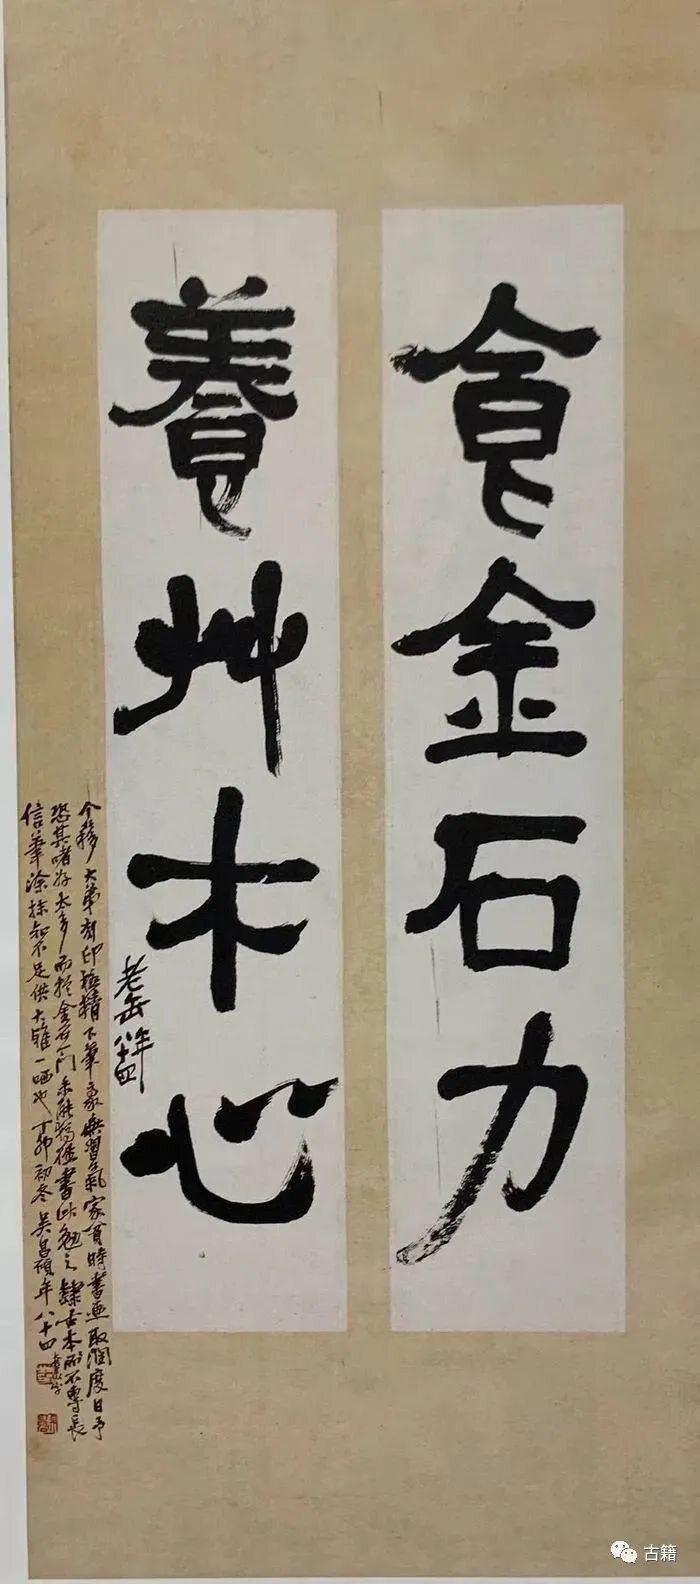 食金石力
養艸木心
老缶年八十四
大弟刻印極精下筆豪無習氣家貧時書画取潤度日予
恐其嗜好太多而於金石一門未能書此勉之隸古本所不專長
信筆塗抹知不足供大雅一哂也丁卯初冬吳昌碩年八十四
古籍